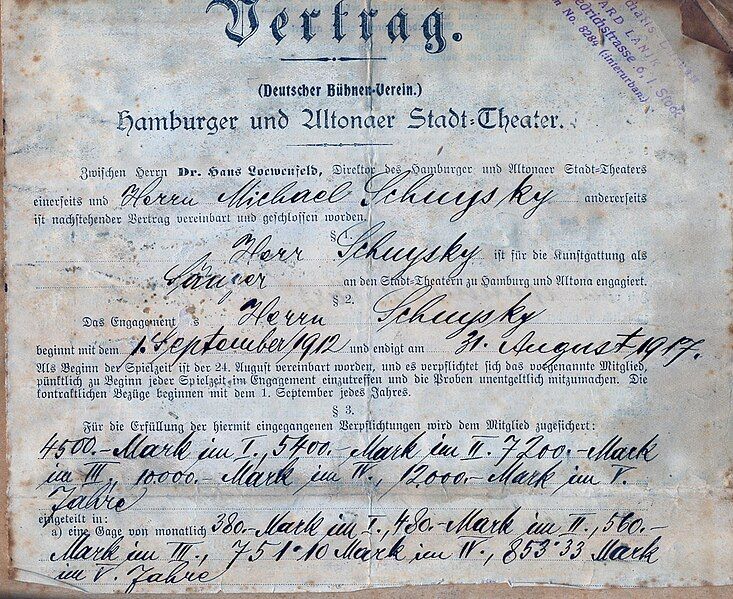 Vertrag.
(Deutscher Bühnen-Verein.)
Hamburger und Altonaer Stadt-Theater.
Zwischen Herrn Dr. Hans Loewenfeld, Direktor des Hamburger und Altonaer Stadt-Theaters
einerseits und Herrn Michael Schuysky andererseits
ist nachstehender Vertrag vereinbart und geschlossen worden.
§
Herr Schuysky ist für die Kunstgattung als
Sänger an den Stadt-Theatern zu Hamburg und Altona engagiert.
§ 2.
Das Engagement Herrn Schuysky
beginnt mit dem 1. September 1912 und endigt am 31. August 1917.
Als Beginn der Spielzeit ist der 24. August vereinbart worden, und es verpflichtet sich das vorgenannte Mitglied,
pünktlich zu Beginn jeder Spielzeit im Engagement einzutreffen und die Proben unentgeltlich mitzumachen. Die
kontraktlichen Bezüge beginnen mit dem 1. September jedes Jahres.
§ 3.
Für die Erfüllung der hiermit eingegangenen Verpflichtungen wird dem Mitglied zugesichert:
4500.- Mark im I., 5400.- Mark im II. 7200.- Mark
im III., 10000.- Mark im IV., 12000.- Mark im V.
Jahre
eingeteilt in:
a) eine Gage von monatlich 380.- Mark im I., 480.- Mark im II., 560.-
Mark im III., 751.10 Mark im IV., 853.33 Mark
im V. Jahre
6, I. Stock
No. 8284 (interurban)